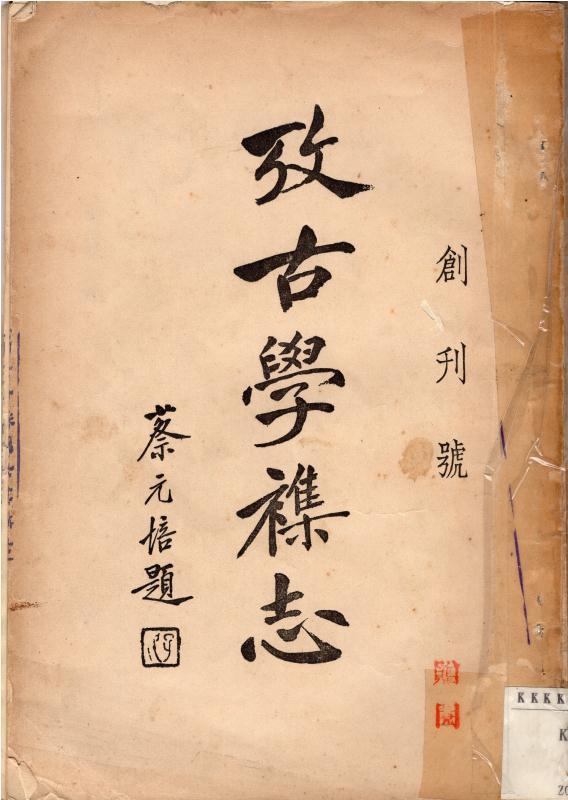 創刊號
攷古學襍志
蔡元培題
贈閱
KKKK
K